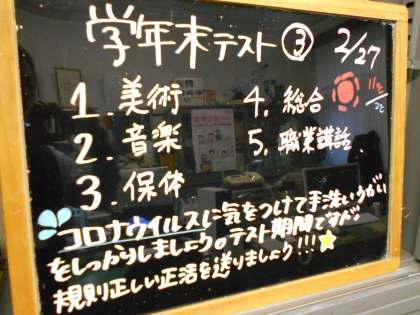 学年末テスト③ 2/27
1.美術 4.総合 11℃/2℃
2.音楽 5.職業講話
3.保体
コロナウイルスに気をつけて手洗いうがい
をしっかりしましょう。テスト期間ですが
規則正しい正活を送りましょう!!!